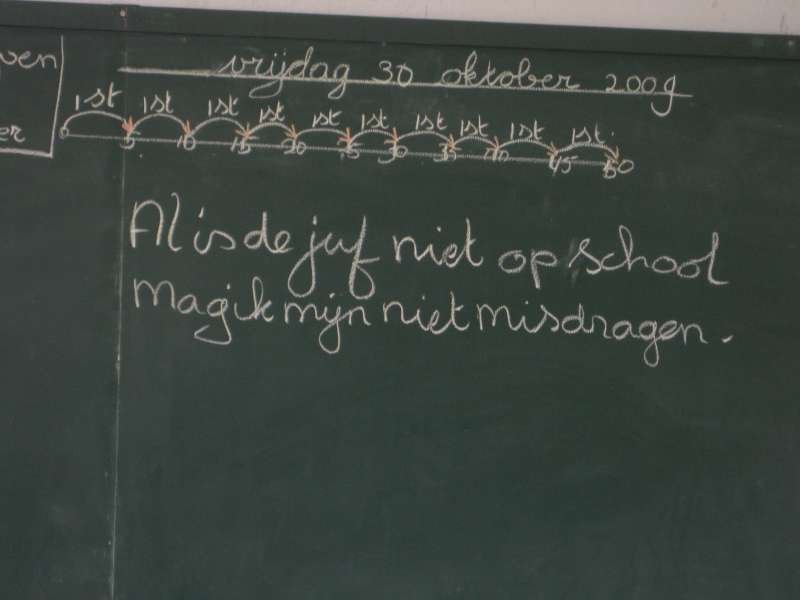 ven
er
vrijdag 30 oktober 2009
1st 1st 1st 1st 1st 1st 1st 1st 1st 1st
0 5 10 15 20 25 30 35 40 45 50
Al is de juf niet op school
mag ik mijn niet misdragen.